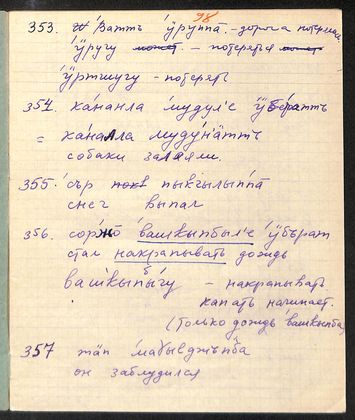 98
353. Ваттъ ӱруппа. - дорога потерял
ӱругу - потеряться
ӱртшугу - потерять
354. кананла мудул'е ӱбъраттъ
= кананла мудунӓттъ
собаки залаяли.
355. сър пыкгылыппа
снег выпал
356. соржо вашкыпбыл'е ӱбъран
стал накрапывать дождь
вашкыпыгу - накрапывать
капать начинает.
(только дождь вашкыпба)
357 тӓп
он заблудился